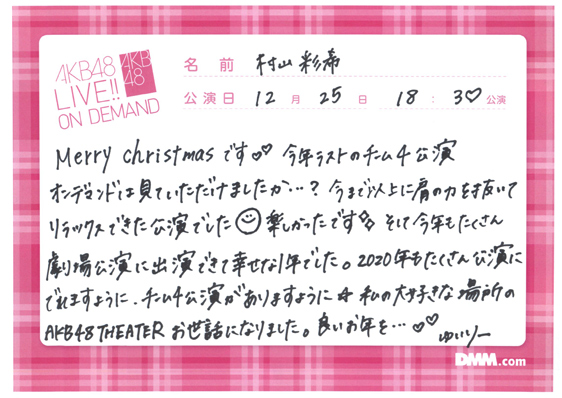 AKB48
LIVE!!
ON DEMAND
AKB
48
名前 村山彩希
公演日 12月25日 18:30公演
Merry christmasです♡♡ 今年ラストのチーム4公演
オンデマンドは見ていただけましたか…? 今まで以上に肩の力を抜いて
リラックスできた公演でした☺楽しかったです✨ そして今年もたくさん
劇場公演に出演できて幸せな1年でした。2020年もたくさん公演に
でれますように、チーム4公演がありますように☆ 私の大好きな場所の
AKB48 THEATER お世話になりました。良いお年を…♡♡
ゆいりー
DMM.com